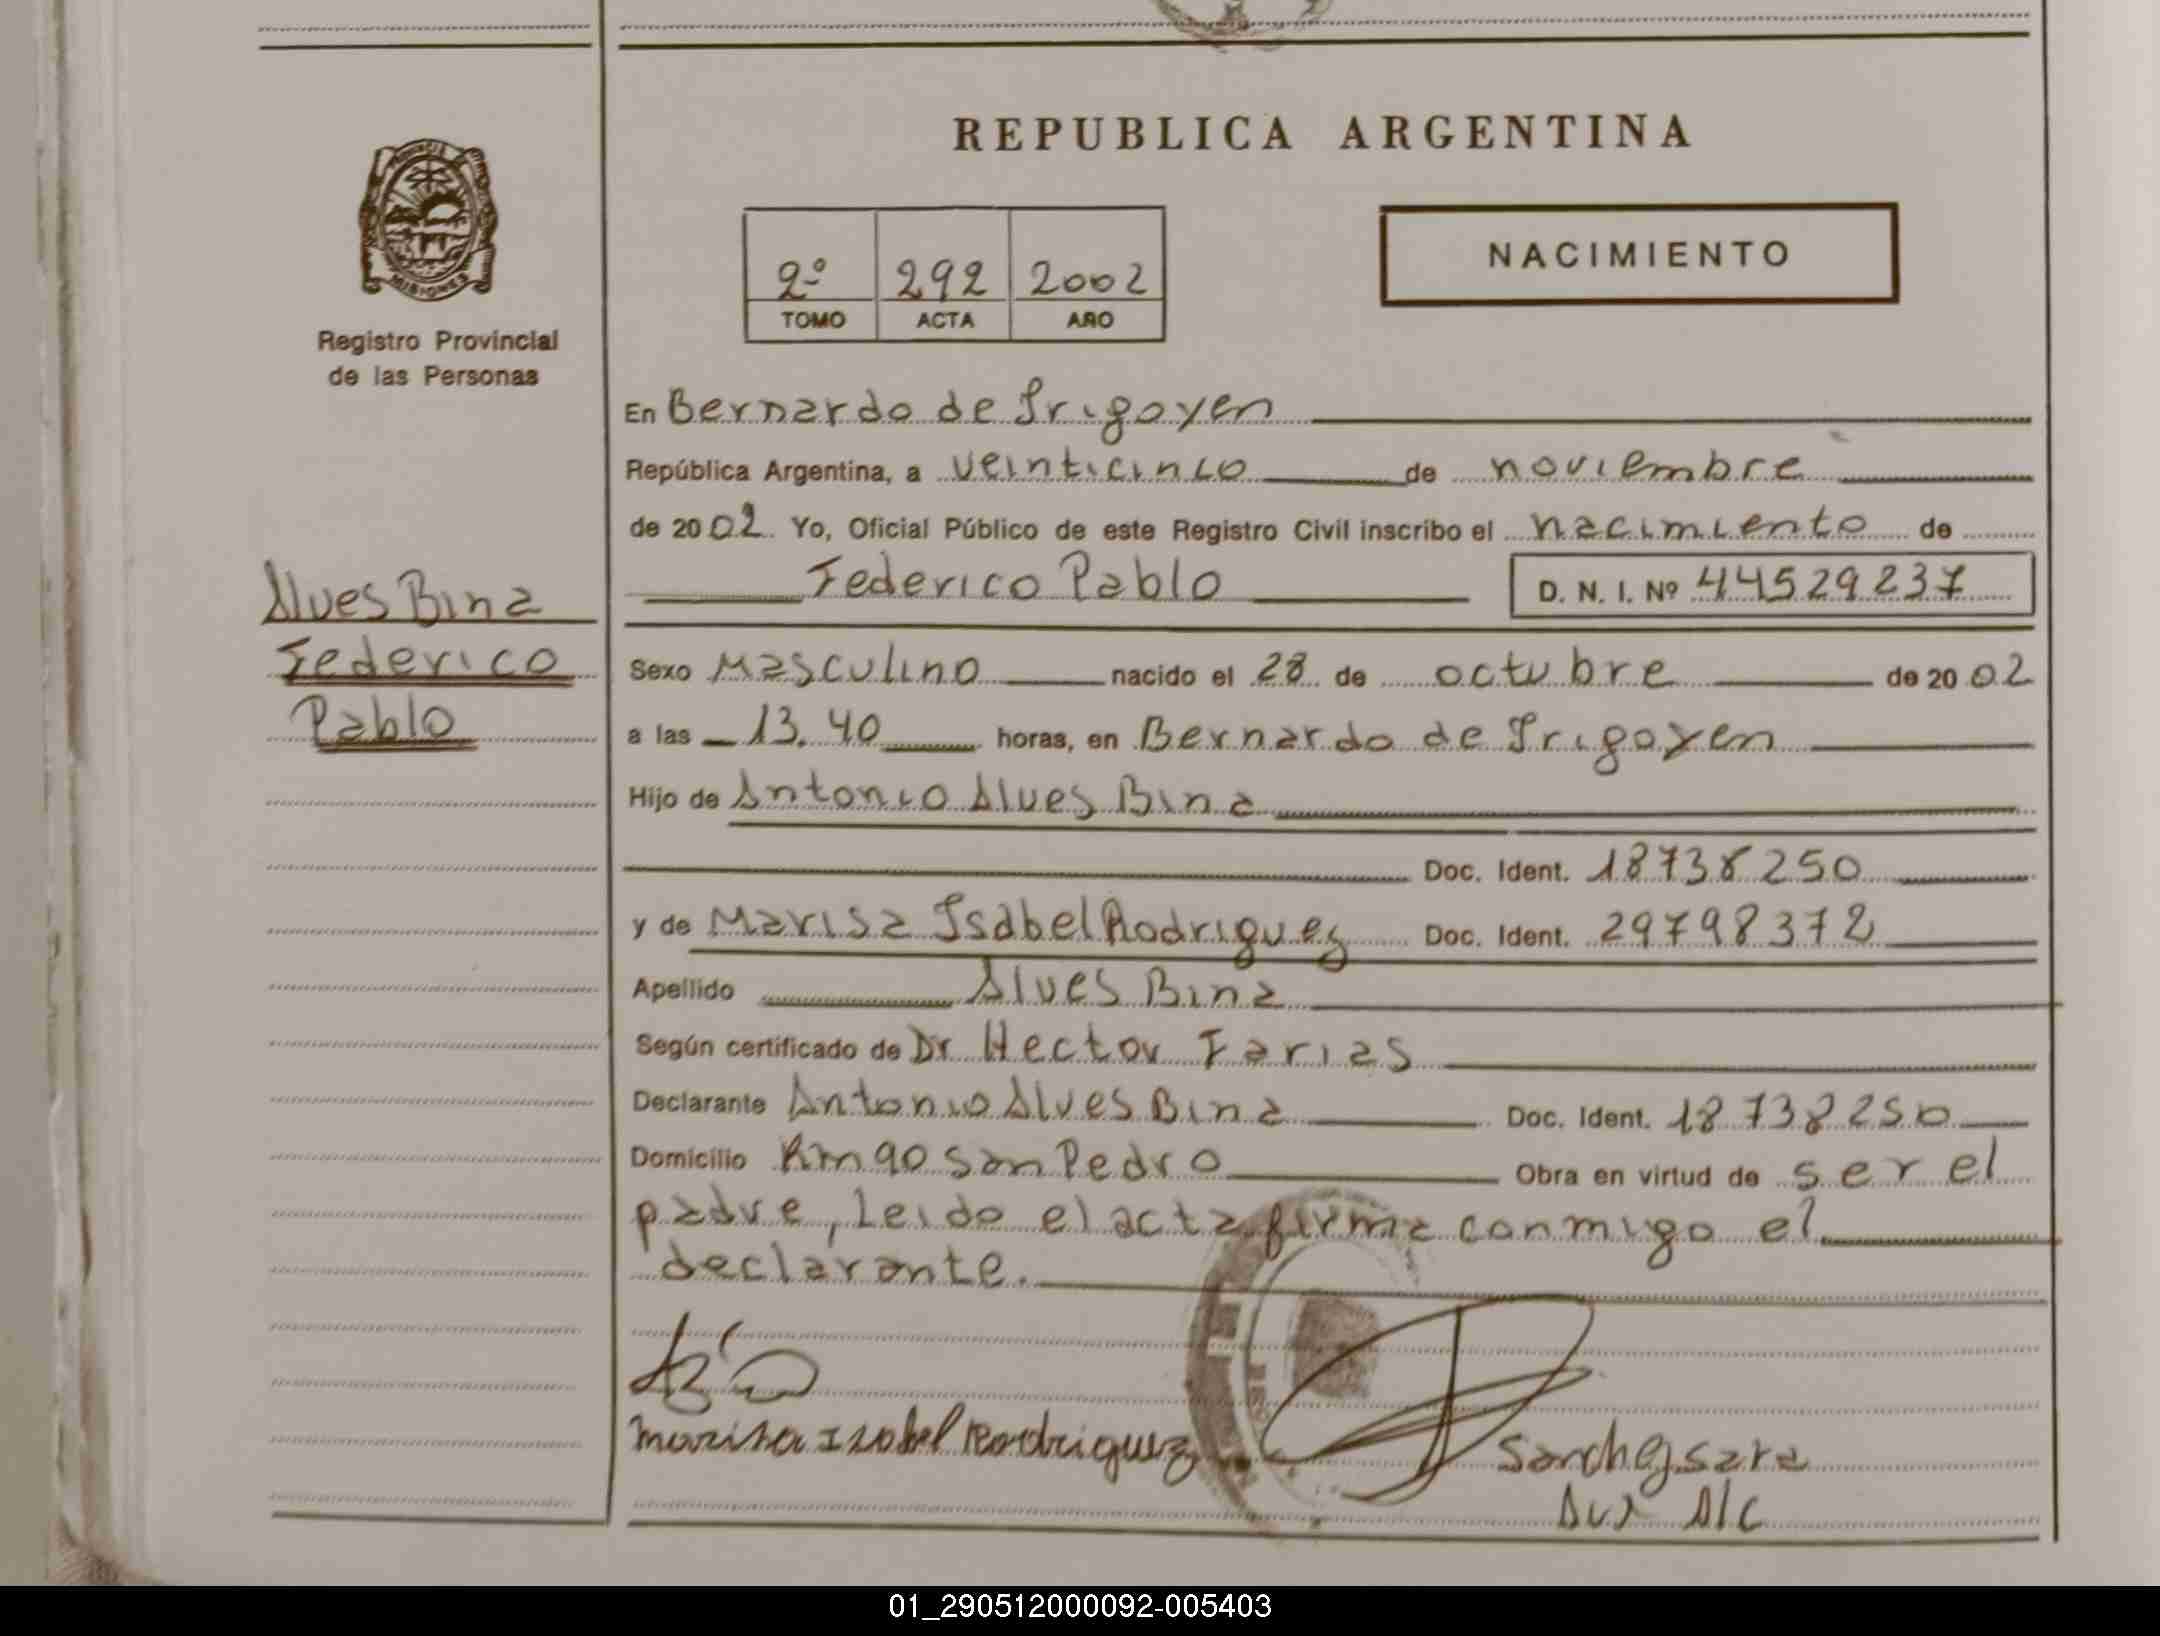 REPUBLICA ARGENTINA
PROVINCIA
MISIONES
Registro Provincial
de las Personas
2º 292 2002
TOMO ACTA AÑO
NACIMIENTO
En Bernardo de Irigoyen
República Argentina, a veinticinco de noviembre
de 2002. Yo, Oficial Público de este Registro Civil inscribo el nacimiento de
Federico Pablo D. N. I. Nº 44529237
Alves Bina
Federico
Pablo
Sexo Masculino nacido el 28 de octubre de 2002
a las 13.40 horas, en Bernardo de Irigoyen
Hijo de Antonio Alves Bina
Doc. Ident. 18738250
y de Marisa Isabel Rodriguez Doc. Ident. 29798372
Apellido Alves Bina
Según certificado de Dr Hector Farias
Declarante Antonio Alves Bina Doc. Ident. 18738250
Domicilio Km 90 San Pedro Obra en virtud de ser el
padre, Leido el acta firma conmigo el
declarante.
Marisa Izabel Rodriguez
Sanchez Sara
Aux A/C
01_290512000092-005403